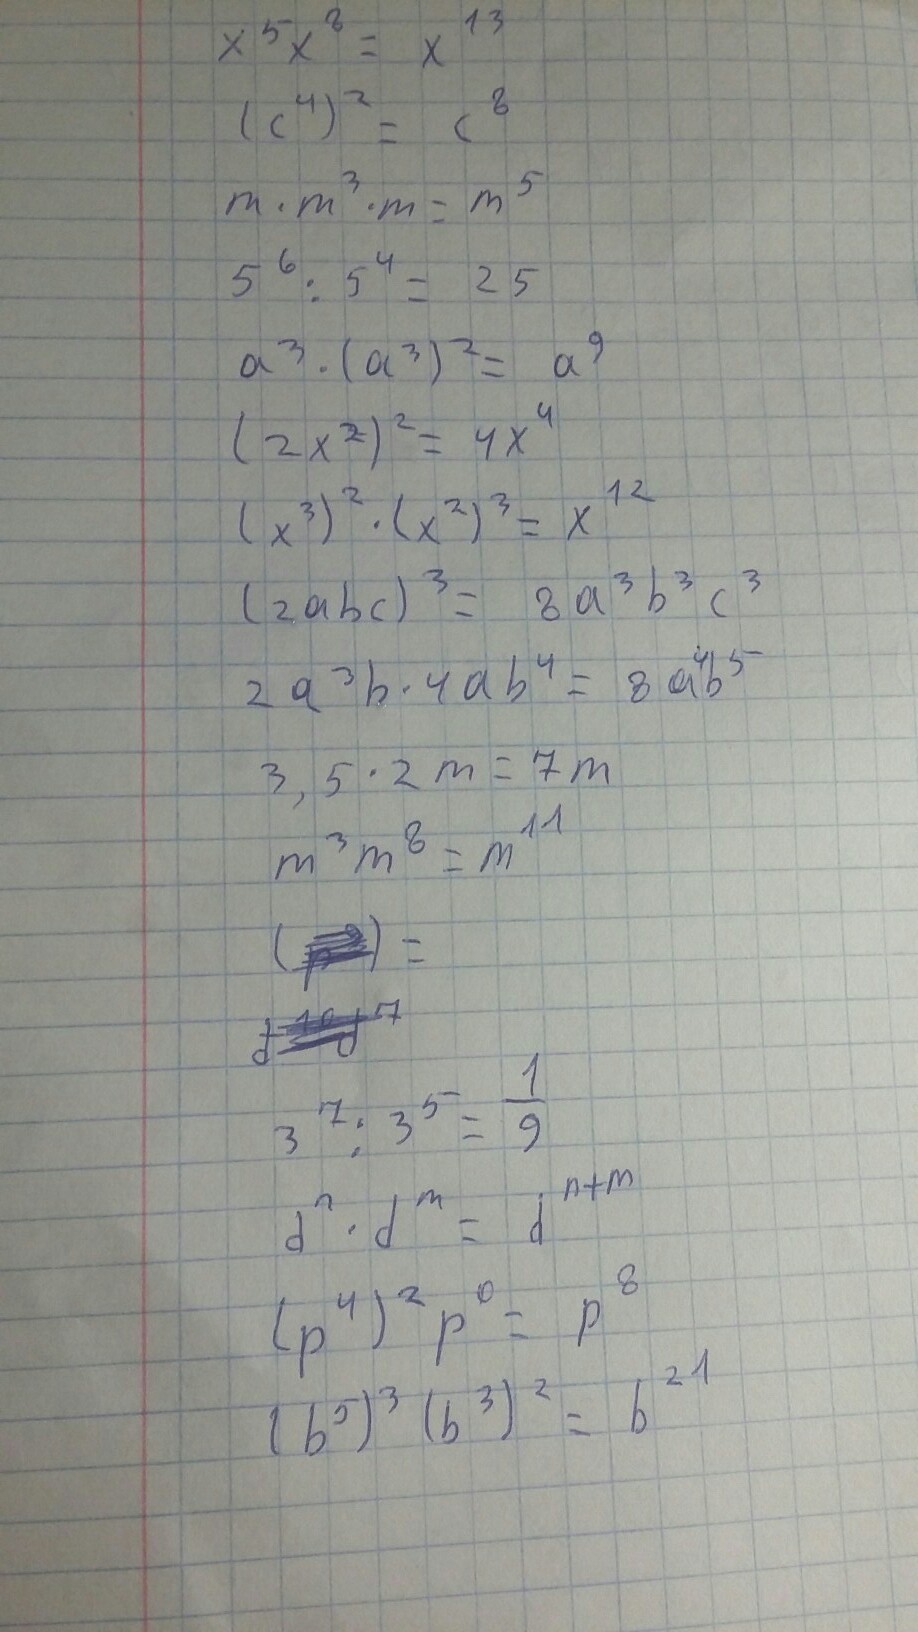 x⁵x⁸ = x¹³
(c⁴)² = c⁸
m · m³ · m = m⁵
5⁶ : 5⁴ = 25
a³ · (a³)² = a⁹
(2x²)² = 4x⁴
(x³)² · (x²)³ = x¹²
(2abc)³ = 8a³b³c³
2a³b · 4ab⁴ = 8a⁴b⁵
3,5 · 2m = 7m
m³m⁸ = m¹¹
( ) =
3⁷ : 3⁵ = 1/9
dⁿ · dᵐ = dⁿ⁺ᵐ
(p⁴)² p⁰ = p⁸
(b⁵)³ (b³)² = b²¹